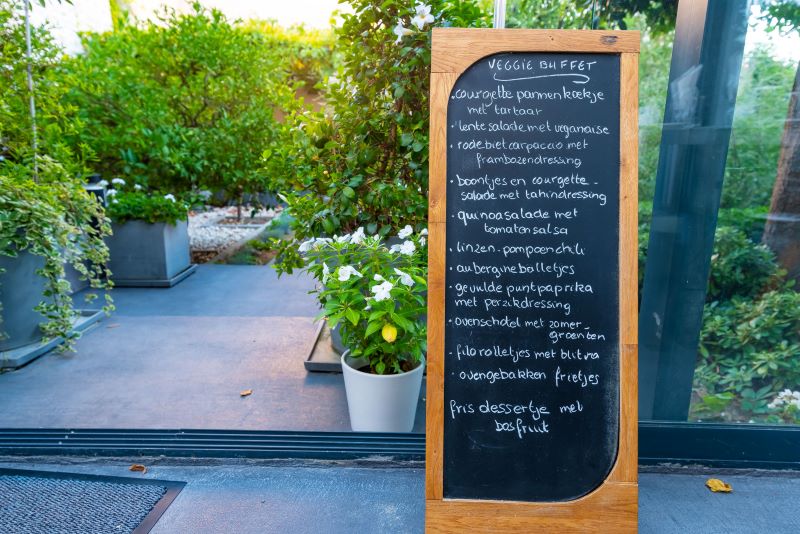 VEGGIE BUFFET
• courgette pannenkoekje
met tartaar
• lente salade met veganaise
• rode biet carpaccio met
frambozendressing
• boontjes en courgette -
salade met tahindressing
• quinoa salade met
tomatensalsa
• linzen-pompoenchili
• aubergine balletjes
• gevulde puntpaprika
met perzikdressing
• ovenschotel met zomer-
groenten
• filorolletjes met bl
• ovengebakken frietjes
fris dessertje met
bosfruit